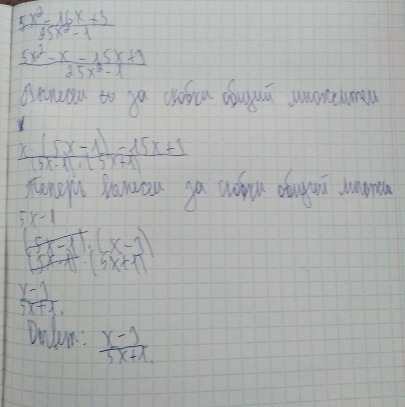 5x² - 16x + 3
25x² - 1
5x² - x - 15x + 3
25x² - 1
Вынесем за скобки общий множитель
x
x · (5x - 1) - 15x + 3
(5x - 1) · (5x + 1)
Теперь вынесем за скобки общий множитель
5x - 1
(5x - 1) · (x - 3)
(5x - 1) · (5x + 1)
x - 3
5x + 1.
Ответ: x - 3
5x + 1.